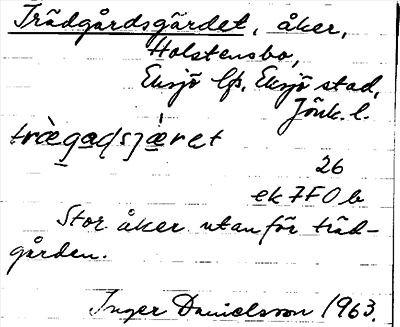 Trädgårdsgärdet, åker,
Holstensbo,
Eksjö lfs, Eksjö stad,
Jönk. l.
trægadsjæret
26
ek 7F0b
Stor åker utanför träd-
gården.
Inger Danielsson 1963.